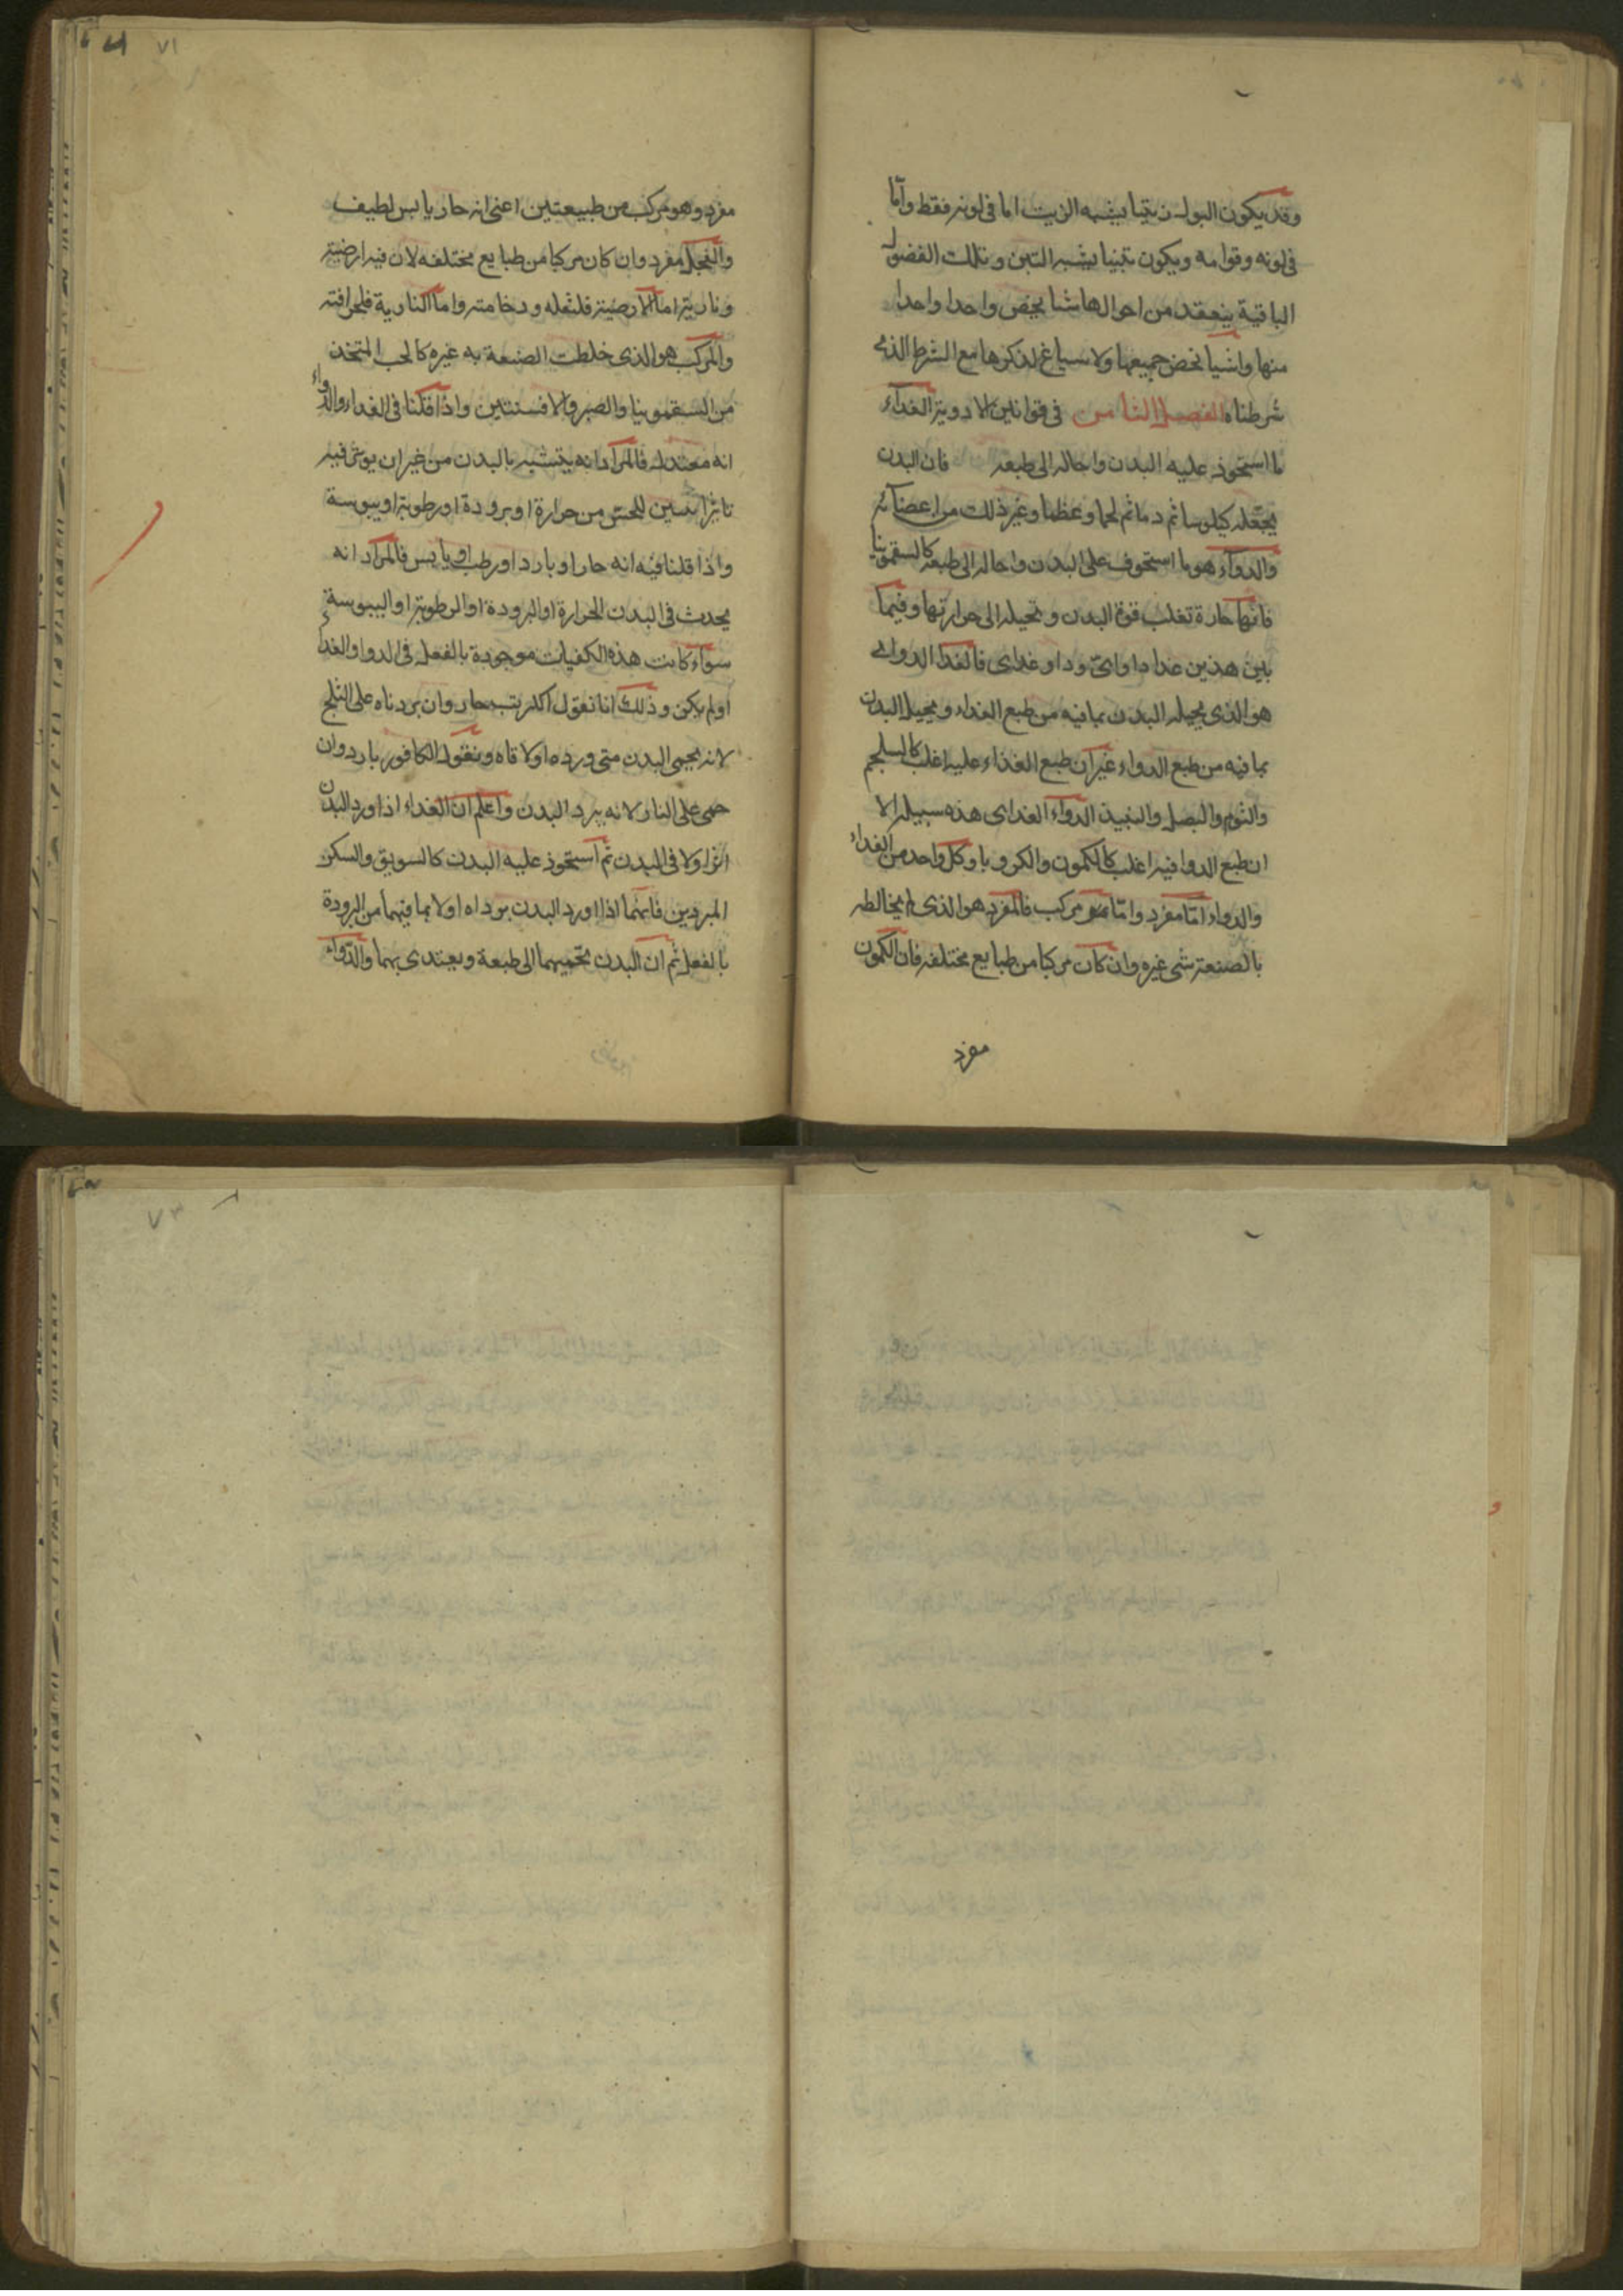 وقد يكون البول زيتيا يشبه الزيت اما فى لونه فقط واما
فى لونه وقوامه ويكون تبنيا يشبه التبن وتلك الفضول
الباقية ينعقد من احوالها شيا يخص واحدا واحدا
منها واشيا تخص جميعها ولا سياغ لذكرها مع الشرط الذى
شرطناه الفصل الثامن فى قوانين الادوية الغداء
ما استحوذ عليه البدن واحاله الى طبعه فان البدن
يجعله كيلوسا ثم دما ثم لحما وعظما وغير ذلك من اعضائه
والدواء هو ما استحوف على البدن واحاله الى طبعه كالسقمونيا
فانها حارة تغلب قوة البدن وتحيله الى حرارتها وفيما
بين هذين غدا داواى ودا وغداى فالغدا الدواى
هو الذى يحيله البدن بما فيه من طبع الغداء ويحيل البدن
بما فيه من طبع الدواء غير ان طبع الغذاء عليه اغلب كالسلجم
والثوم والبصل والنبيد الدواء الغداى هذه سبيله الا
ان طبع الدوا فيه اغلب كالكمون والكرويا وكل واحد من الغداء
والدواء اما مفرد واما مركب فالمفرد هو الذى لم يخالطه
بالصنعة شى غيره وان كان مركبا من طبايع مختلفه فان الكمون
مفرد
٧١
مفرد وهو مركب من طبيعتين اعنى انه حار يابس لطيف
والفجل مفرد وان كان مركبا من طبايع مختلفه لان فيه ارضية
ونارية اما الارضية فلثقله ودخامته واما النارية فلحرافته
والمركب هو الذى خلطت الصنعة به غيره كالحب المتخذ
من السقمونيا والصبر والافسنتين واذا قلنا فى الغداء والدواء
انه معتدل فالمراد انه يتشبه بالبدن من غير ان يوثر فيه
تاثيرا يتبين للحس من حرارة او برودة او رطوبة او يبوسة
واذا قلنا فيه انه حار او بارد او رطب او يابس فالمراد انه
يحدث فى البدن الحرارة او البرودة او الرطوبة او اليبوسة
سواء كانت هذه الكفيات موجودة بالفعل فى الدوا والغدا
او لم يكن وذلك انا نقول حار وان بردناه على الثلج
لانه يحمى البدن متى ورده او لاقاه ونقول الكافور بارد وان
حمى على النار لانه يبرد البدن واعلم ان الغداء اذا ورد البدن
اثر اولا فى البدن ثم استحوذ عليه البدن كالسويق والسكر
المبردين فانهما اذا اورد البدن برداه اولا بما فيهما من البرودة
بالفعل ثم ان البدن يحميهما الى طبعة ويغتدى بهما والدواء
٧٣